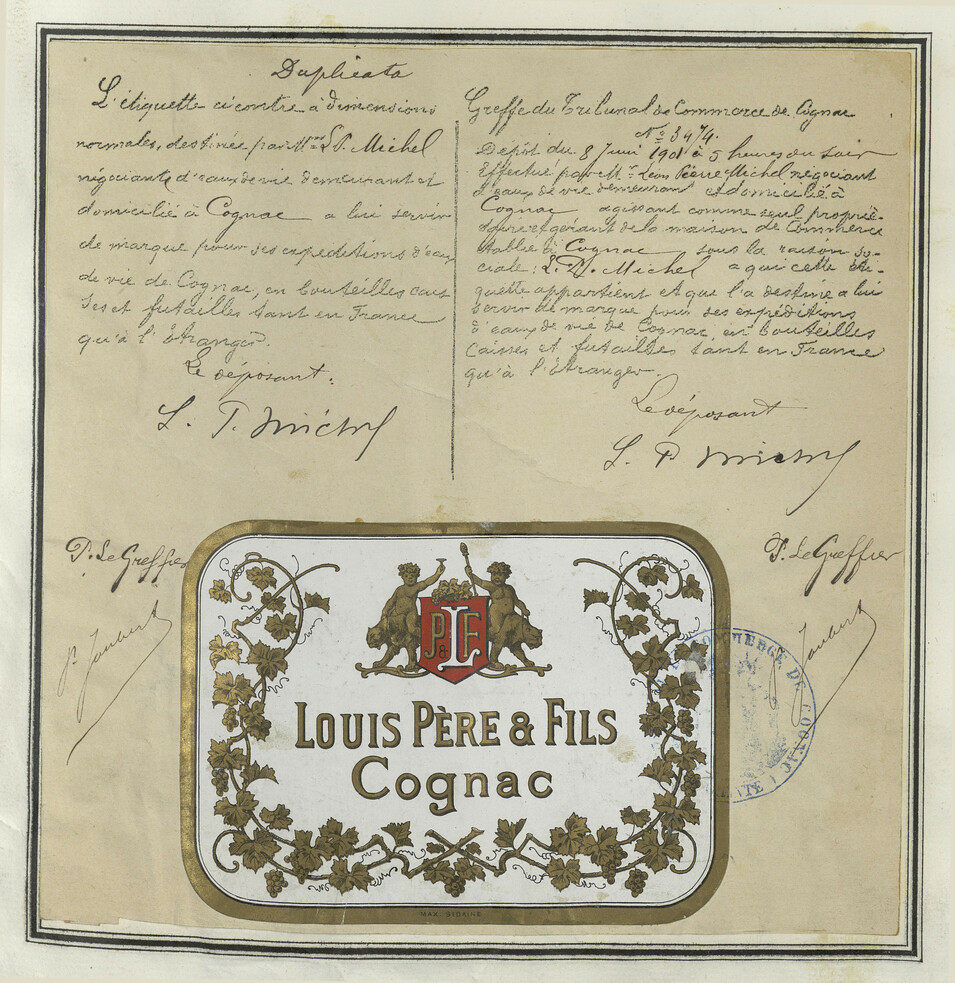 Duplicata
L'étiquette ci contre à dimensions
normales, destinée par Mr L. P. Michel
négociant d'eaux de vie demeurant et
domicilié à Cognac a lui servir
de marque pour ses expeditions d'eaux
de vie de Cognac, en bouteilles cais
ses et futailles tant en France
qu'à l'Etranger.
Le déposant:
L. P. Michel
P. Le Greffier
P. Joubert
Greffe du Tribunal de Commerce de Cognac
No 3474.
Depôt du 8 Juin 1901 à 5 heures du soir
Effectué par Mr Léon Pierre Michel negociant
d'eaux de vie demeurant et domicilié à
Cognac agissant comme seul proprié-
taire et gérant de la maison de Commerce
établie à Cognac sous la raison so-
ciale: L. P. Michel a qui cette éti-
quette appartient et que l'a destine a lui
servir de marque pour ses expéditions
d'eaux de vie de Cognac en bouteilles
Caisses et futailles tant en France
qu'à l'Etranger.
Le déposant
L. P. Michel
P. Le Greffier
Joubert
P & F
L
LOUIS PÈRE & FILS
Cognac
MAX. SIDAINE
COMMERCE DE COGNAC